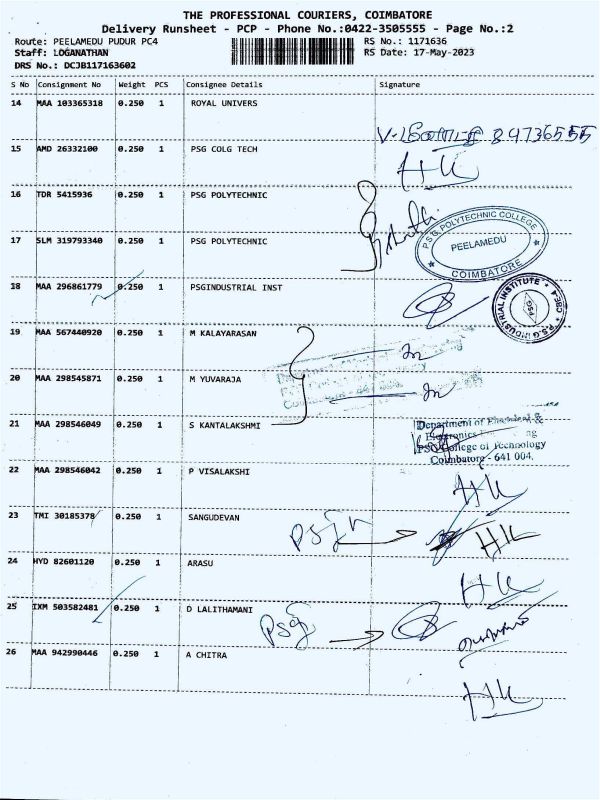 THE PROFESSIONAL COURIERS, COIMBATORE
Delivery Runsheet - PCP - Phone No.:0422-3505555 - Page No.:2
Route: PEELAMEDU PUDUR PC4 RS No.: 1171636
Staff: LOGANATHAN RS Date: 17-May-2023
DRS No.: DCJB117163602
S No Consignment No Weight PCS Consignee Details Signature
14 MAA 103365318 0.250 1 ROYAL UNIVERS
15 AMD 26332100 0.250 1 PSG COLG TECH
HK
16 TDR 5415936 0.250 1 PSG POLYTECHNIC
17 SLM 319793340 0.250 1 PSG POLYTECHNIC
P.S.G. POLYTECHNIC COLLEGE
PEELAMEDU
COIMBATORE
18 MAA 296861779 0.250 1 PSGINDUSTRIAL INST
P.S.G. INDUSTRIAL INSTITUTE
19 MAA 567440920 0.250 1 M KALAYARASAN
20 MAA 298545871 0.250 1 M YUVARAJA
21 MAA 298546049 0.250 1 S KANTALAKSHMI
Department of &
PSG College of Technology
Coimbatore - 641 004.
22 MAA 298546042 0.250 1 P VISALAKSHI
HK
23 TMI 30185378 0.250 1 SANGUDEVAN
HK
24 HYD 82601120 0.250 1 ARASU
HK
25 IXM 503582481 0.250 1 D LALITHAMANI
26 MAA 942990446 0.250 1 A CHITRA
HK